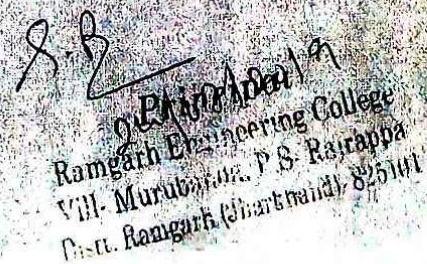 Principal
Ramgarh Engineering College
Vill- Murubanda, P.S- Rajrappa
Distt. Ramgarh (Jharkhand), 825101